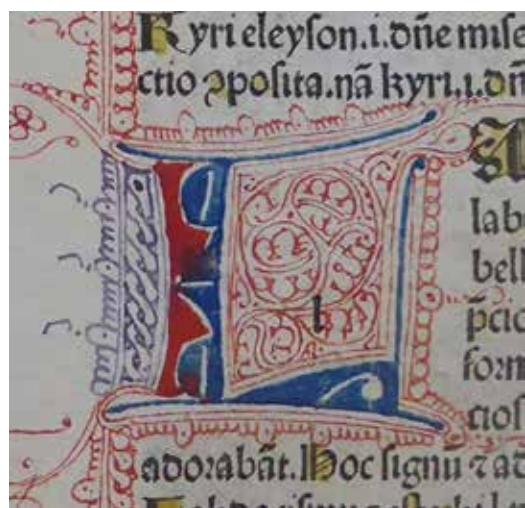 Kyri eleyson.i.dñe mise
ctio ꝯposita.nã kyri.i.dñ
L
l
A
lab
bell
p̄cio
form
ctios
adorabãt. Hoc signũ ⁊ ad